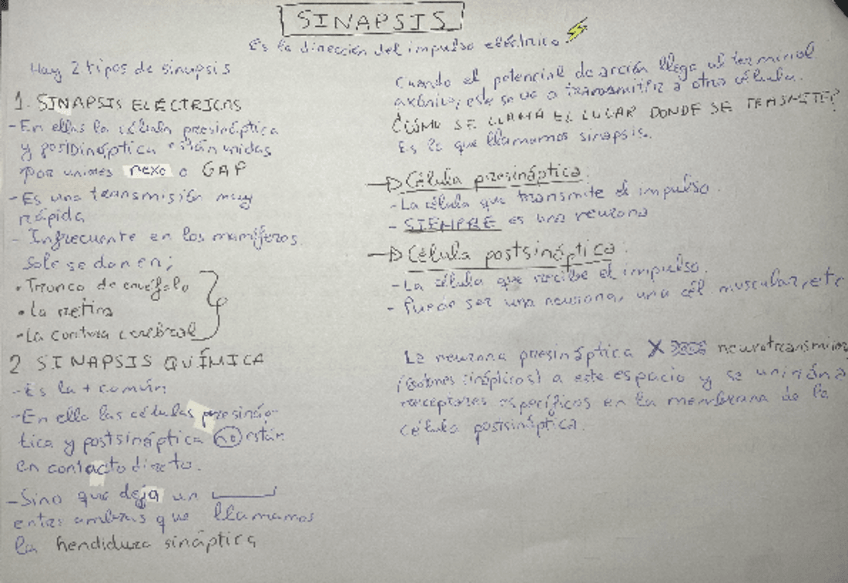 SINAPSIS
Es la dirección del impulso eléctrico.
Hay 2 tipos de sinapsis
1. SINAPSIS ELÉCTRICAS
- En ellas la célula presináptica
y postsináptica están unidas
por uniones nexo o GAP
- Es una transmisión muy
rápida
- Infrecuente en los mamíferos.
Solo se dan en;
• Tronco de encéfalo
• La retina
• La corteza cerebral
2 SINAPSIS QUÍMICA
- Es la + común
- En ella las células presináp-
tica y postsináptica no están
en contacto directo.
- Sino que deja un
entre ambas que llamamos
la hendidura sináptica
Cuando el potencial de acción llega al terminal
axónico, este se va a transmitir a otra célula.
¿CÓMO SE LLAMA EL LUGAR DONDE SE TRANSMITE?
Es lo que llamamos sinapsis.
Célula presináptica:
- La célula que transmite el impulso.
- SIEMPRE es una neurona
Célula postsináptica:
- La célula que recibe el impulso.
- Puede ser una neurona, una cél muscular, etc
La neurona presináptica X neurotransmisores
sinápticos) a este espacio y se unirán a
receptores específicos en la membrana de la
célula postsináptica.